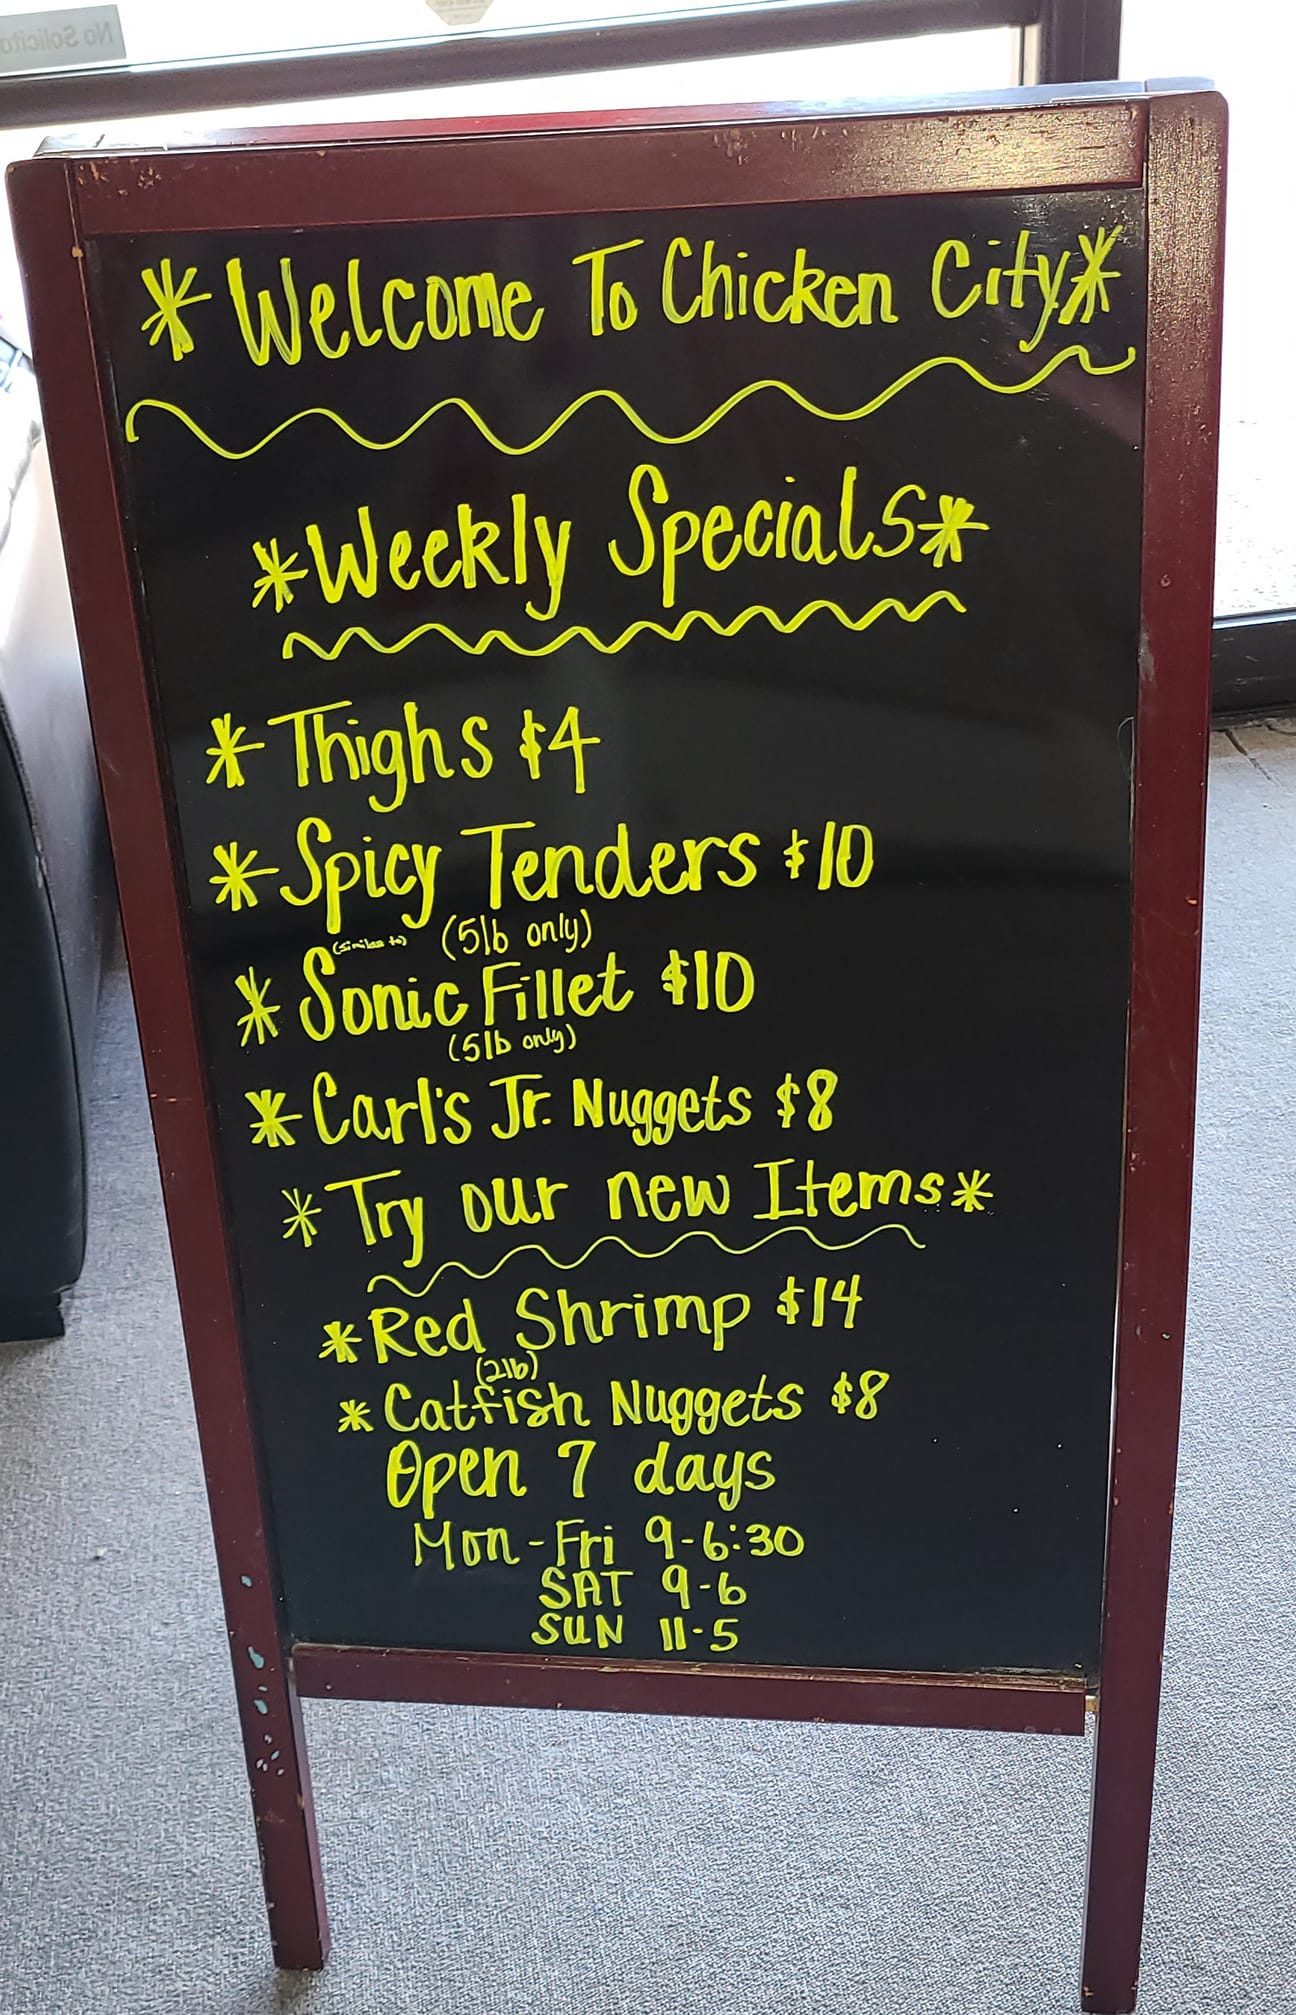 No Solicito
*Welcome To Chicken City*
*Weekly Specials*
*Thighs $4
*Spicy Tenders $10
(5lb only)
(similar to)
*Sonic Fillet $10
(5lb only)
*Carl's Jr. Nuggets $8
*Try our new Items*
*Red Shrimp $14
(2lb)
*Catfish Nuggets $8
Open 7 days
Mon-Fri 9-6:30
SAT 9-6
SUN 11-5